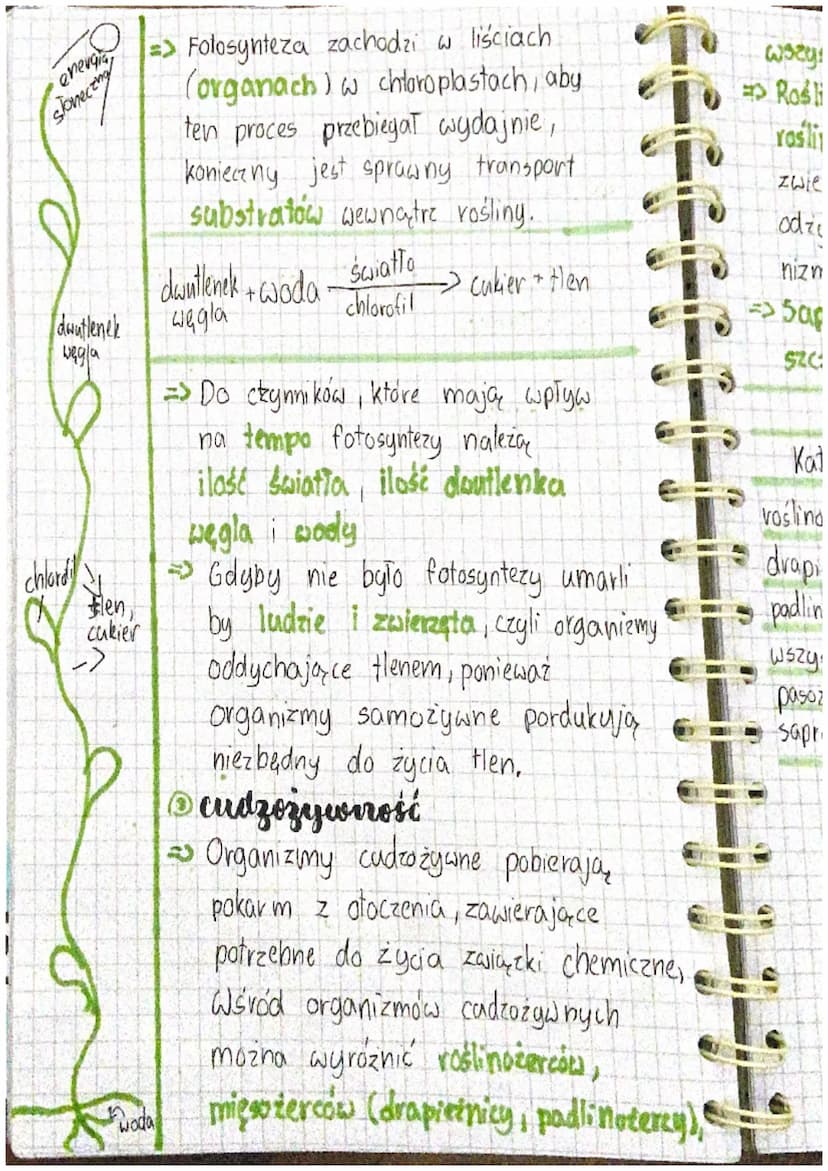 energia
słoneczna
dwutlenek
węgla
chlorofil
tlen,
cukier
woda
=> Fotosynteza zachodzi w liściach
(organach) w chloroplastach, aby
ten proces przebiegał wydajnie,
konieczny jest sprawny transport
substratów wewnątrz rośliny.
dwutlenek węgla + woda światło chlorofil -> cukier + tlen
=> Do czynników, które mają wpływ
na tempo fotosyntezy należą
ilość światła, ilość dwutlenka
węgla i wody
=> Gdyby nie było fotosyntezy umarli
by ludzie i zwierzęta, czyli organizmy
oddychające tlenem, ponieważ
organizmy samożywne pordukują
niezbędny do życia tlen.
③ cudzożywność
=> Organizmy cudzożywne pobierają
pokarm z otoczenia, zawierające
potrzebne do życia związki chemiczne,
Wśród organizmów cudzożywnych
można wyróżnić roślinożerców,
mięsożerców (drapieżnicy, padlinożercy),
wszys
=> Rośli
roślin
zwie
odży
nizm
=> Sap
szcz
Kat
roślino
drapi
padlin
wszy
pasoż
sapr